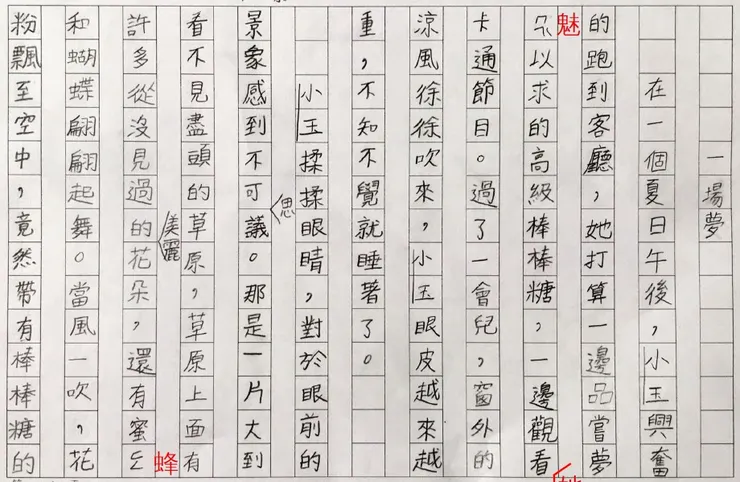 一場夢
在一個夏日午後，小玉興奮
的跑到客廳，她打算一邊品嘗夢
魅以求的高級棒棒糖，一邊觀看
卡通節目。過了一會兒，窗外的
涼風徐徐吹來，小玉眼皮越來越
重，不知不覺就睡著了。
小玉揉揉眼睛，對於眼前的
景象感到不可思議。那是一片大到
看不見盡頭的草原，草原上面有
許多從沒見過的美麗花朵，還有蜜蜂
和蝴蝶翩翩起舞。當風一吹，花
粉飄至空中，竟然帶有棒棒糖的